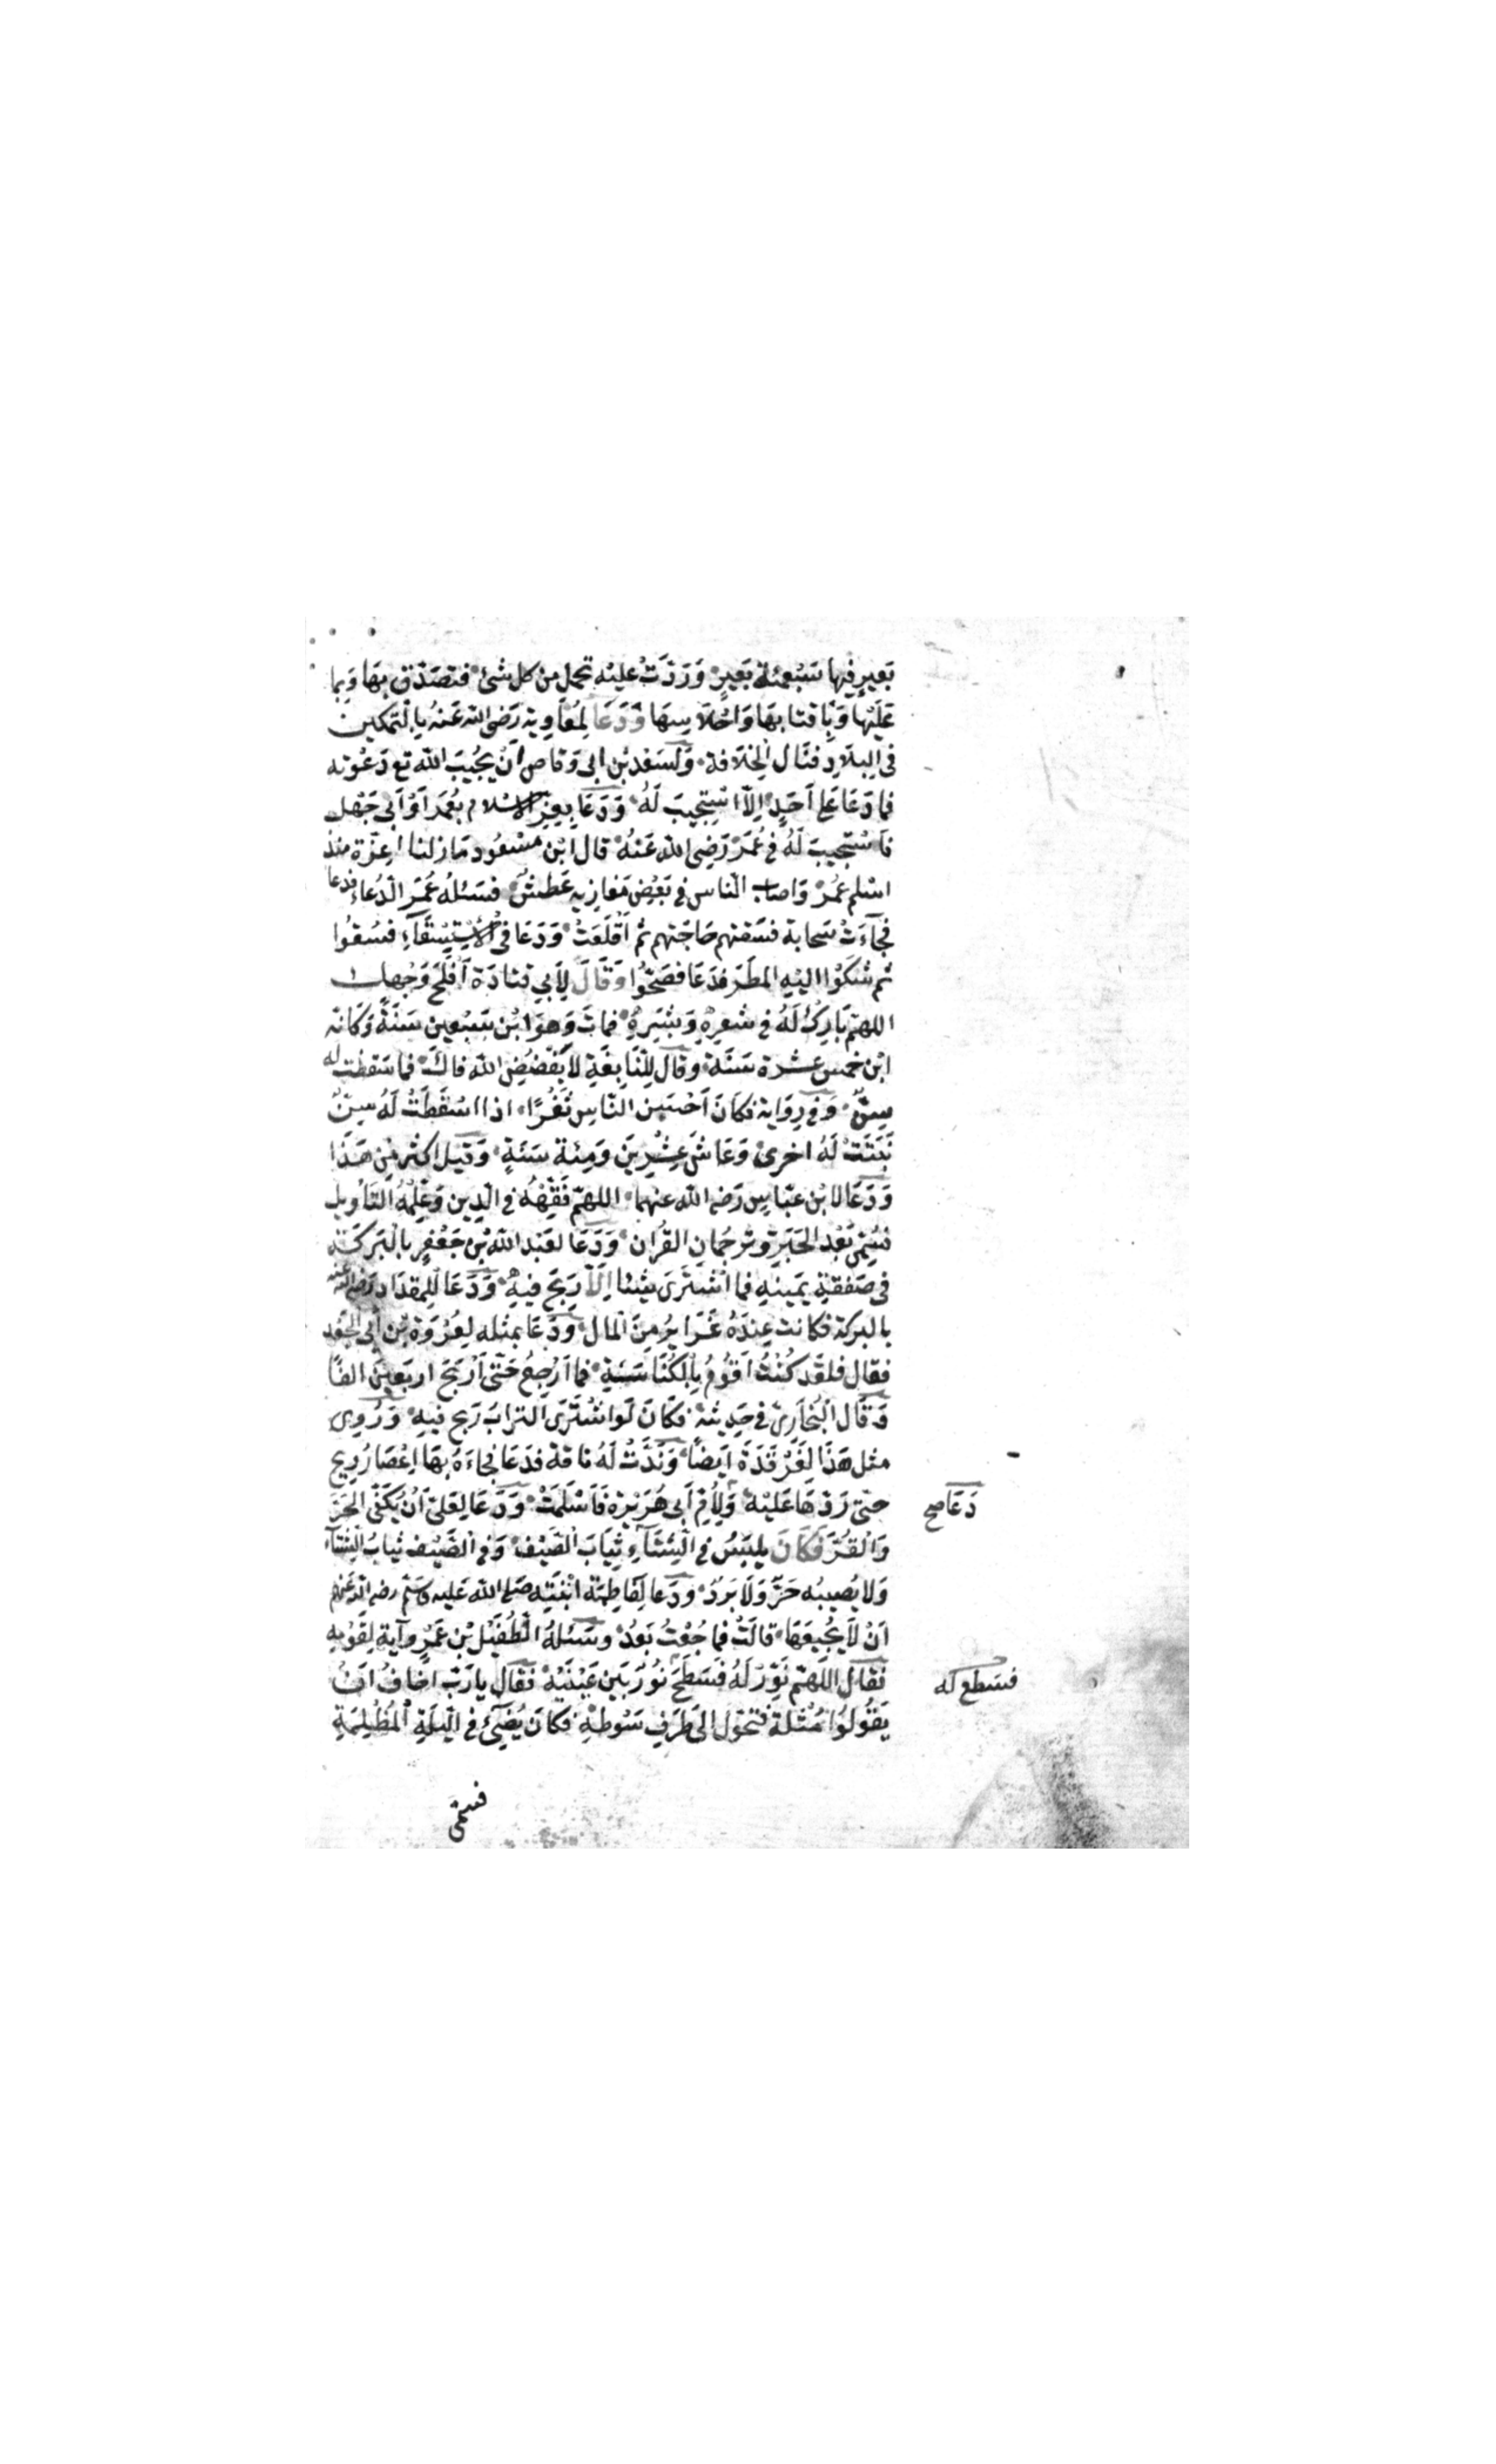 بَعِيرٍ فِيهَا سَبْعُمِئَةِ بَعِيرٍ وَرَدَتْ عَلَيْهِ تَحْمِلُ مِن كل شئ فتصدّق بِهَا وَبِمَا
عَلَيْهَا وَبِاَقتابِهَا وَاَحْلَاسِهَا وَدَعَا لِمُعَاوِيَة رَضِىَ اللّه عَنْهُ بِالتَمْكِينِ
فِى البِلَادِ فنَالَ الخِلَافة وَلِسَعْدِ بْنِ ابى وَقاص اَنْ يُجِيبَ اللّه تع دَعْوَته
فمَا دَعَا عَلى اَحَدٍ اِلّا اسْتُجِيبَ لَهُ وَدَعَا بِعِزّ الاسْلام بِعُمَرَ اَوْ اَبى جَهْل
فَاسْتُجِيبَ لَهُ فى عُمَرَ رَضِىَ اللّه عَنْهُ قال ابْن مَسْعُود مَا زلنا اعِزّة منذ
اسْلم عُمَرُ وَاصاب النّاس فى بَعْضِ مَغازِيهِ عَطشٌ فسَئَلَهُ عُمَرُ الدُعَاءَ فدعا
فجَآءَتْ سَحابة فسَقتهم حَاجَتهم ثم اَقْلَعَتْ وَدَعَا فى الاِسْتِسْقَآءِ فسُقوا
ثم شَكَوْا اليْهِ المَطَرَ فدَعَا فصَحَوْا وَقَالَ لِاَبِى قتَادَة اَفْلَحَ وَجْهك
اللهمّ بَارِكْ لَهُ فى شعرِهِ وَبَشَرِهِ فمَاتَ وَهوَ ابْن سَبْعِين سَنَةً وَكانّه
ابْن خمس عشرة سَنَة وقال للنّابِغَةِ لَا يَفْضُضِ اللّه فاكَ فما سَقطت له
سِنٌّ وَفى رِوَايَة فكَانَ اَحْسَنَ النّاسِ ثَغْرًا اذا اسْقَطَتْ لَهُ سِنّ
نَبَتَتْ لَهُ اخرى وَعَاشَ عِشْرِينَ وَمِئَة سَنَةٍ وَقيل اكثر مِن هَذَا
وَدَعَا لابْن عَبّاسٍ رَضى اللّه عنهما اللهمّ فَقِّهْهُ فى الدِين وَعَلِّمْهُ التَاْويل
فسُمِّى بَعْد الحَبْرَ وترجُمان القرْان وَدَعَا لعَبْد اللّه بْن جَعْفرٍ بِالْبَرَكَة
فى صَفقةِ يَمِينهِ فما اشترَى شيئا اِلّا رَبِحَ فيهِ وَدَعَا لِلْمِقدَاد رَضى الله عنه
بالبركة فكانت عِندَهُ غَرَايرُ مِنَ المال ودَعَا بمثله لِعُرْوَة بْن اَبى الجَعْد
فقال فلقَد كُنْتُ اَقُومُ بِالكُنَاسَةِ فما اَرْجِعُ حَتّى اَرْبَحَ اربَعِينَ الفًا
وَقَال الْبُخَارِىّ فى حَدِيثه فكَانَ لَو اشْتَرَى التّرابَ رَبِح فيهِ وَرُوِى
مثل هَذَا لِغَرْقَدَةَ اَيضًا وَنَدَّتْ لَهُ ناقة فدَعَا فجَاءَهُ بِهَا اِعْصَارُ رِيحٍ
حتى رَدّهَا عَلَيْهِ وَلِاُمِّ اَبى هُرَيْرَة فَاَسْلَمَتْ وَدَعَا لِعَلىّ اَنْ يُكْفَى الحَرّ
دَعَا صح
وَالْقُرّ فكَانَ يلبَسُ فى الشِّتَآءِ ثِيَابَ الصَّيْف وَفى الصَّيْف ثيابَ الشِّتآءِ
وَلا يُصِيبُه حَرٌّ وَلَا بَرْدٌ ودَعا لِفَاطِمَة ابْنَتِهِ صَلى اللّه عَليه وسَلم رضى الله عنهم
اَنْ لَا يُجِيعَهَا قالَتْ فما جُعْتُ بَعْدُ وسَئَلهُ الطُفَيْلُ بْن عَمْرٍو آيَة لِقَوْمِهِ
فقالَ اللّهمّ نَوِّرْ لَهُ فَسَطَعَ نُورٌ بَين عَيْنَيْهِ فقَال يا رَبّ اخافُ اَنْ
فسَطع له
يَقُولوُا مُثْلة فتحَوّل الى طَرَفِ سَوْطِهِ فكانَ يُضِئُ فى اللّيْلَةِ الْمُظْلِمَةِ
فسُمّى